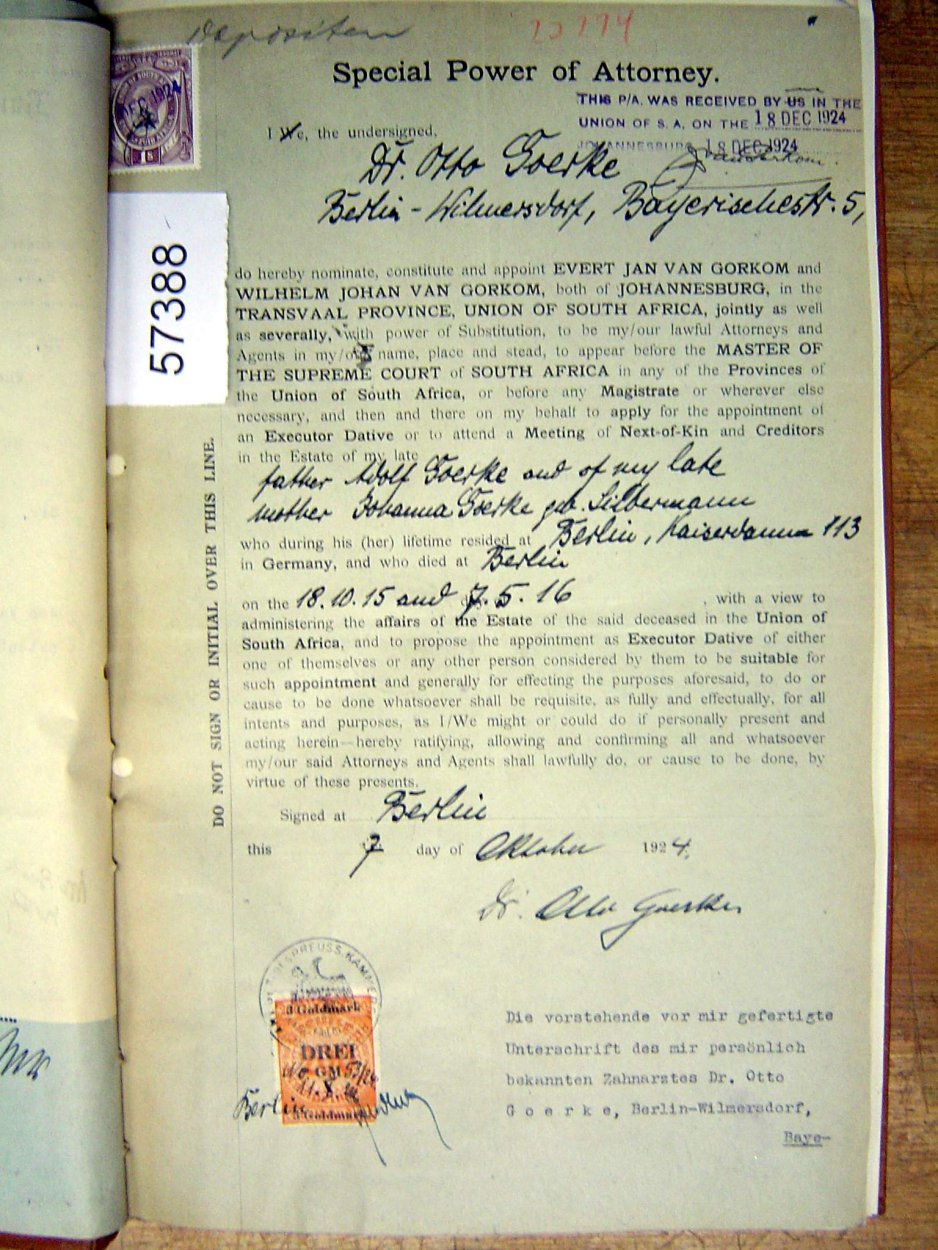 Depositen
Special Power of Attorney.
THIS P/A. WAS RECEIVED BY US IN THE
UNION OF S. A. ON THE 18 DEC 1924
JOHANNESBURG 18 DEC 1924
DEC 1924
I We, the undersigned,
Dr. Otto Goerke
Berlin-Wilmersdorf, Bayerischestr. 5,
57388
do hereby nominate, constitute and appoint EVERT JAN VAN GORKOM and
WILHELM JOHAN VAN GORKOM, both of JOHANNESBURG, in the
TRANSVAAL PROVINCE, UNION OF SOUTH AFRICA, jointly as well
as severally, with power of Substitution, to be my/our lawful Attorneys and
Agents in my/our name, place and stead, to appear before the MASTER OF
THE SUPREME COURT of SOUTH AFRICA in any of the Provinces of
the Union of South Africa, or before any Magistrate or wherever else
necessary, and then and there on my behalf to apply for the appointment of
an Executor Dative or to attend a Meeting of Next-of-Kin and Creditors
in the Estate of my late
father Adolf Goerke and of my late
mother Johanna Goerke geb. Silbermann
who during his (her) lifetime resided at Berlin, Kaiserdamm 113
in Germany, and who died at Berlin
on the 18.10.15 and 7.5.16, with a view to
administering the affairs of the Estate of the said deceased in the Union of
South Africa, and to propose the appointment as Executor Dative of either
one of themselves or any other person considered by them to be suitable for
such appointment and generally for effecting the purposes aforesaid, to do or
cause to be done whatsoever shall be requisite, as fully and effectually, for all
intents and purposes, as I/We might or could do if personally present and
acting herein—hereby ratifying, allowing and confirming all and whatsoever
my/our said Attorneys and Agents shall lawfully do, or cause to be done, by
virtue of these presents.
DO NOT SIGN OR INITIAL OVER THIS LINE.
Signed at Berlin
this 7 day of Oktober 1924.
Dr. Otto Goerke
PREUSS. KAMMER
3 Goldmark
DREI
GM
3 Goldmark
Berlin
Die vorstehende vor mir gefertigte
Unterschrift des mir persönlich
bekannten Zahnarztes Dr. Otto
G o e r k e, Berlin-Wilmersdorf,
Baye-